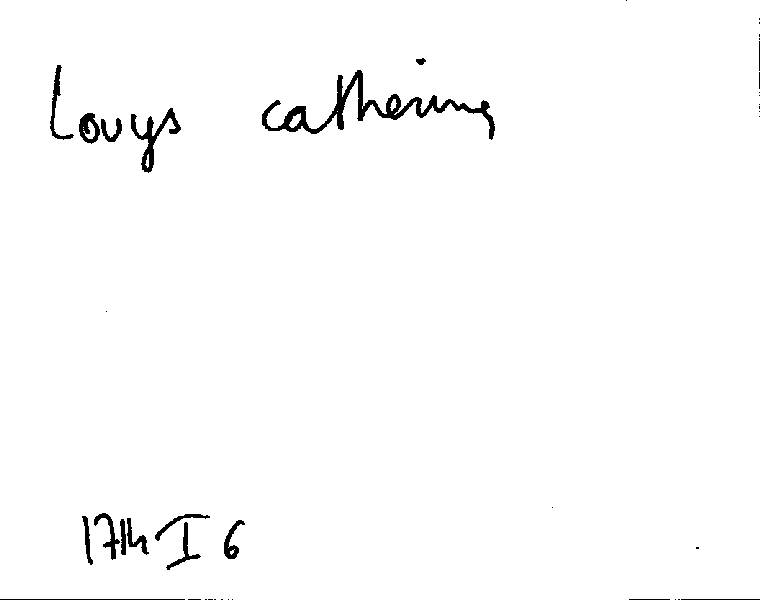 Louys catherine
1714 I 6